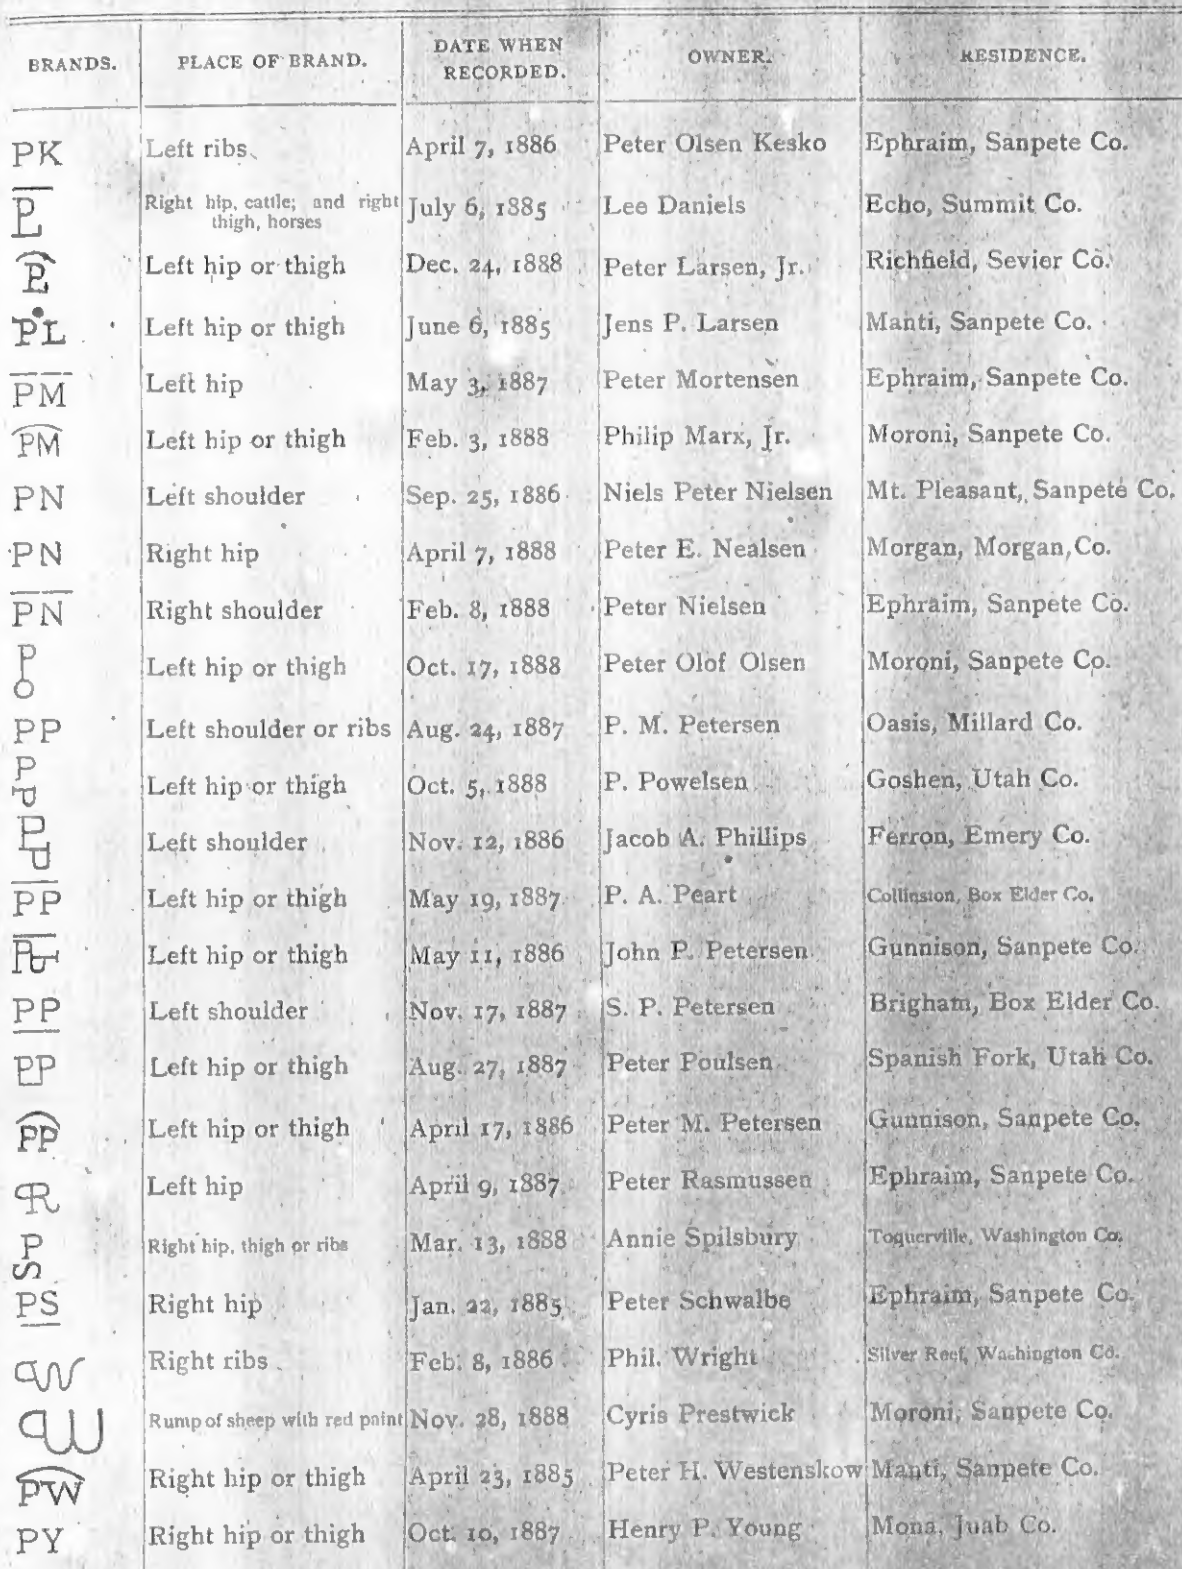 BRANDS. PLACE OF BRAND. DATE WHEN RECORDED. OWNER. RESIDENCE.
PK Left ribs April 7, 1886 Peter Olsen Kesko Ephraim, Sanpete Co.
PL Right hip, cattle; and right thigh, horses July 6, 1885 Lee Daniels Echo, Summit Co.
PL Left hip or thigh Dec. 24, 1888 Peter Larsen, Jr. Richfield, Sevier Co.
P•L Left hip or thigh June 6, 1885 Jens P. Larsen Manti, Sanpete Co.
PM Left hip May 3, 1887 Peter Mortensen Ephraim, Sanpete Co.
PM Left hip or thigh Feb. 3, 1888 Philip Marx, Jr. Moroni, Sanpete Co.
PN Left shoulder Sep. 25, 1886 Niels Peter Nielsen Mt. Pleasant, Sanpete Co.
PN Right hip April 7, 1888 Peter E. Nealsen Morgan, Morgan Co.
PN Right shoulder Feb. 8, 1888 Peter Nielsen Ephraim, Sanpete Co.
PO Left hip or thigh Oct. 17, 1888 Peter Olof Olsen Moroni, Sanpete Co.
PP Left shoulder or ribs Aug. 24, 1887 P. M. Petersen Oasis, Millard Co.
PP Left hip or thigh Oct. 5, 1888 P. Powelsen Goshen, Utah Co.
PP Left shoulder Nov. 12, 1886 Jacob A. Phillips Ferron, Emery Co.
PP Left hip or thigh May 19, 1887 P. A. Peart Collinston, Box Elder Co.
PP Left hip or thigh May 11, 1886 John P. Petersen Gunnison, Sanpete Co.
PP Left shoulder Nov. 17, 1887 S. P. Petersen Brigham, Box Elder Co.
PP Left hip or thigh Aug. 27, 1887 Peter Poulsen Spanish Fork, Utah Co.
PP Left hip or thigh April 17, 1886 Peter M. Petersen Gunnison, Sanpete Co.
PR Left hip April 9, 1887 Peter Rasmussen Ephraim, Sanpete Co.
PS Right hip, thigh or ribs Mar. 13, 1888 Annie Spilsbury Toquerville, Washington Co.
PS Right hip Jan. 22, 1885 Peter Schwalbe Ephraim, Sanpete Co.
PW Right ribs Feb. 8, 1886 Phil. Wright Silver Reef, Washington Co.
PW Rump of sheep with red paint Nov. 28, 1888 Cyris Prestwick Moroni, Sanpete Co.
PW Right hip or thigh April 23, 1885 Peter H. Westenskow Manti, Sanpete Co.
PY Right hip or thigh Oct. 10, 1887 Henry P. Young Mona, Juab Co.